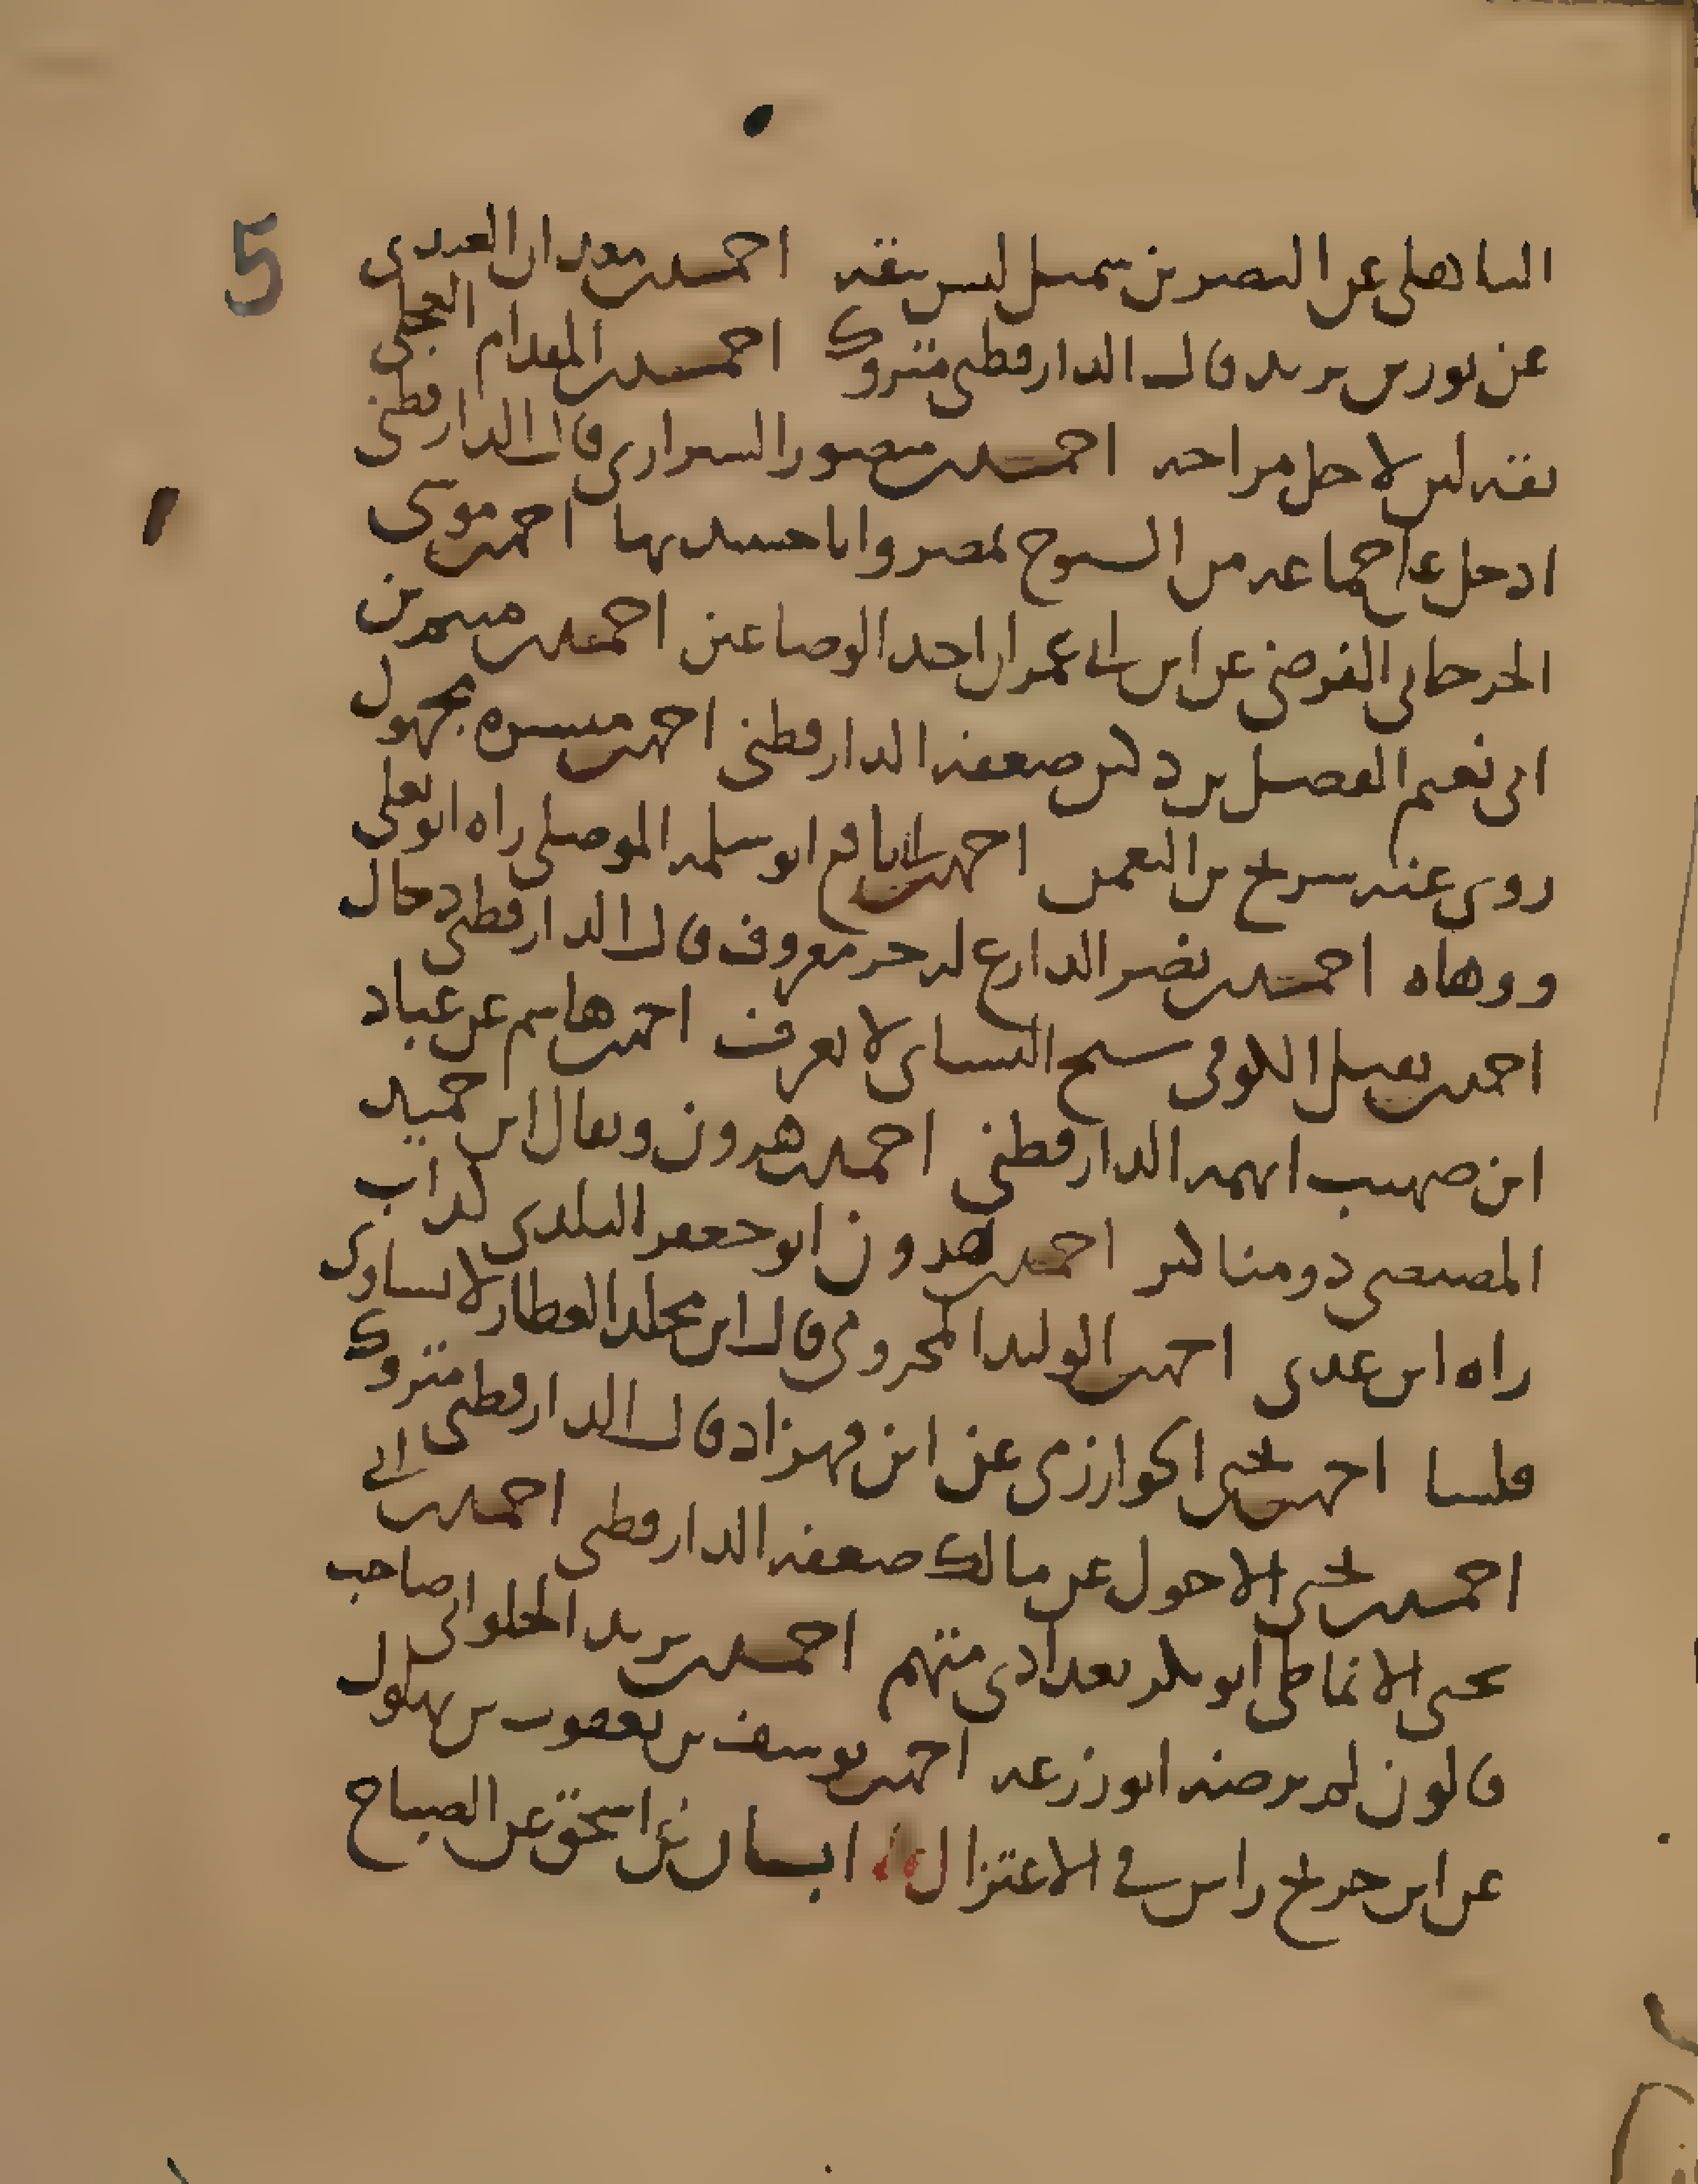 الباهلي عن النضر بن شميل ليس بثقه احمد بن معدان العبدي 5
عن ثور بن يزيد قال الدارقطني متروك احمد بن المقدام العجلي
ثقه ليس لاجل مزاحه احمد بن منصور الشيرازي قال الدارقطني
ادخل على جماعه من الشيوخ بمصر وانا حينئذ بها احمد بن موسى
الجرجاني الفرضي عن ابن ابي عمران احد الوضاعين احمد بن ميسم بن
ابي نعيم الفضل بن دكين ضعفه الدارقطني احمد بن ميسره مجهول
روى عنه سريج بن النعمن احمد بن ابي نافع ابو سلمه الموصلي راه ابو يعلى
ووهاه احمد بن نصر الدارع له جزء معروف قال الدارقطني دجال
احمد بن نفيل الكوفي شيخ النساي لا يعرف احمد بن هاشم عن عباد
ابن صهيب اتهمه الدارقطني احمد بن هرون ويقال ابن حميد
المصيصي ذو مناكير احمد بن هرون ابو جعفر البلدي كذاب
راه ابن عدي احمد بن الوليد المخرومي قال ابن مخلد العطار لا يساوي
فلسا احمد بن يحيى الخوارزمي عن ابن قهزاد قال الدارقطني متروك
احمد بن يحيى الاحول عن مالك ضعفه الدارقطني احمد بن ابي
يحيى الانماطي ابو بكر بغدادي متهم احمد بن يزيد الحلواني صاحب
قالون لم يرضه ابو زرعه احمد بن يوسف بن يعقوب بن بهلول
عن ابن جريج راس في الاعتزال ابان بن اسحق عن الصباح